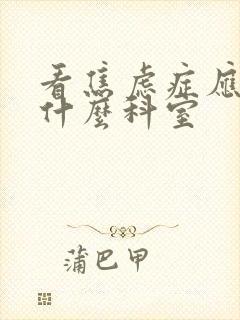 看焦虑症应
什麼科室
蒲巴甲